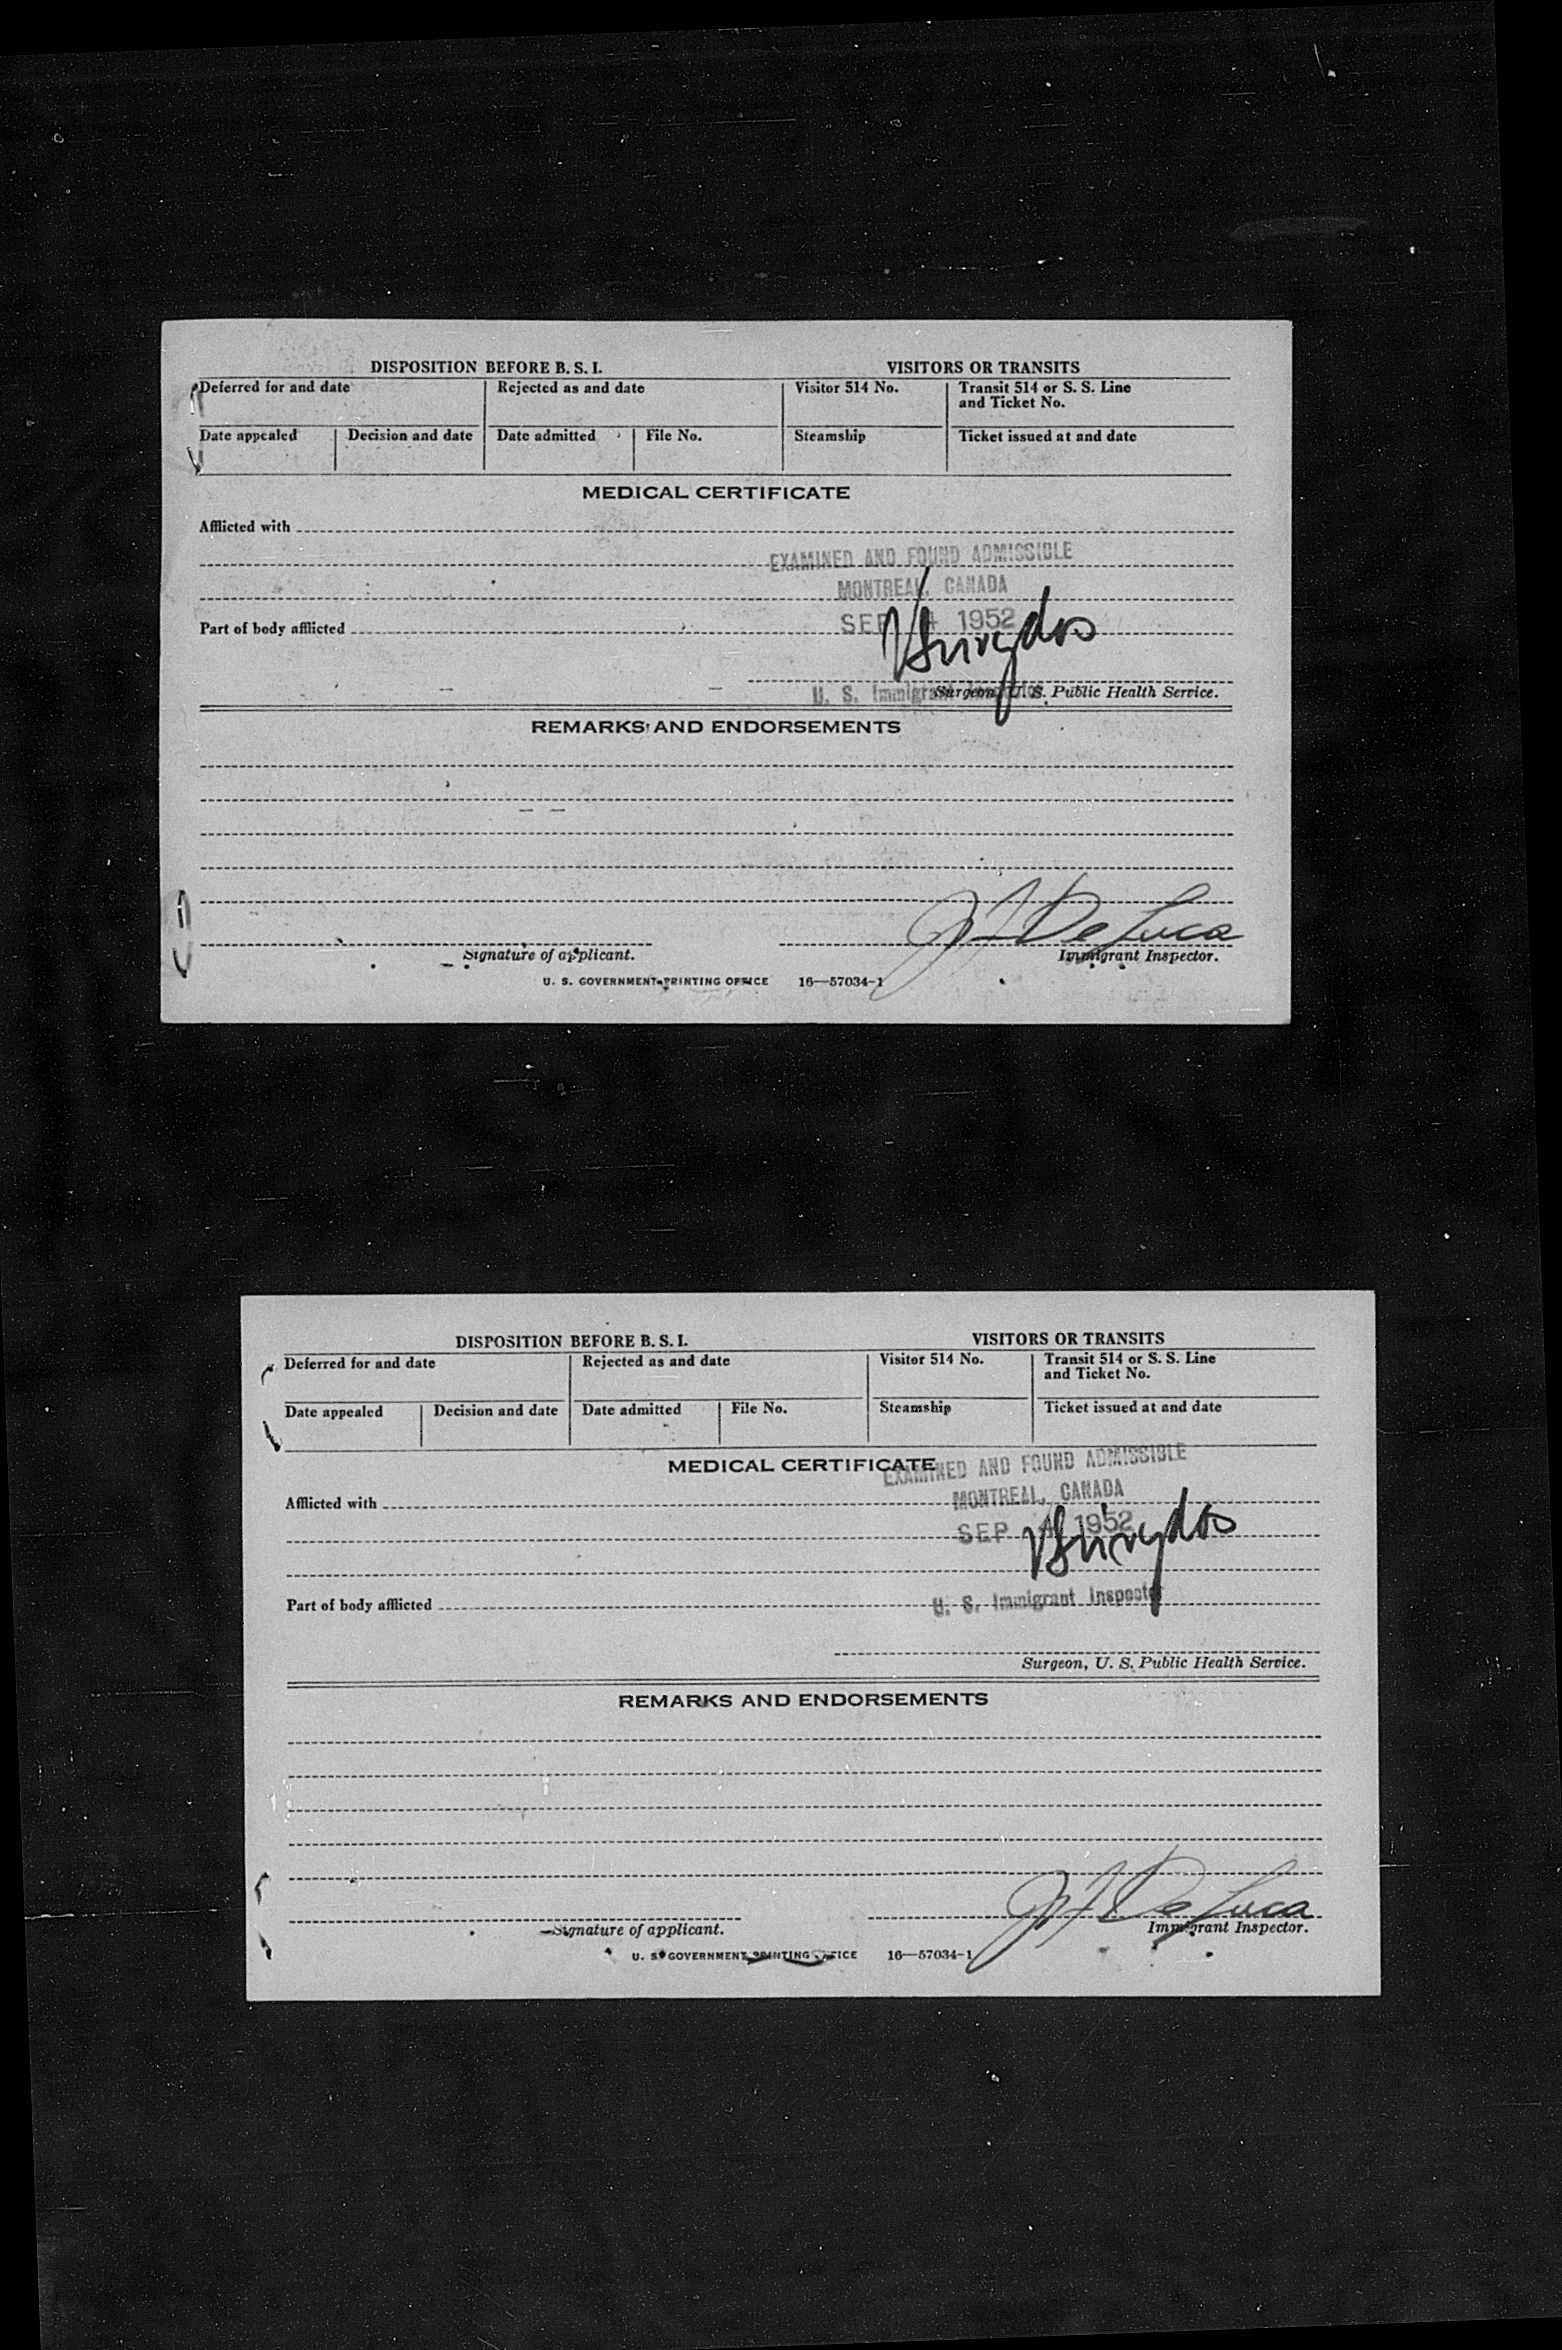 DISPOSITION BEFORE B. S. I. VISITORS OR TRANSITS
Deferred for and date Rejected as and date Visitor 514 No. Transit 514 or S. S. Line
and Ticket No.
Date appealed Decision and date Date admitted File No. Steamship Ticket issued at and date
MEDICAL CERTIFICATE
Afflicted with
EXAMINED AND FOUND ADMISSIBLE
MONTREAL, CANADA
SEP 4 1952
Part of body afflicted
U. S. Immigrant
Surgeon, U. S. Public Health Service.
REMARKS AND ENDORSEMENTS
De Luca
Signature of applicant. Immigrant Inspector.
U. S. GOVERNMENT PRINTING OFFICE 16—57034-1
DISPOSITION BEFORE B. S. I. VISITORS OR TRANSITS
Deferred for and date Rejected as and date Visitor 514 No. Transit 514 or S. S. Line
and Ticket No.
Date appealed Decision and date Date admitted File No. Steamship Ticket issued at and date
MEDICAL CERTIFICATE
EXAMINED AND FOUND ADMISSIBLE
MONTREAL, CANADA
Afflicted with
SEP 4 1952
U. S. Immigrant Inspector
Part of body afflicted
Surgeon, U. S. Public Health Service.
REMARKS AND ENDORSEMENTS
De Luca
Signature of applicant. Immigrant Inspector.
U. S. GOVERNMENT PRINTING OFFICE 16—57034-1